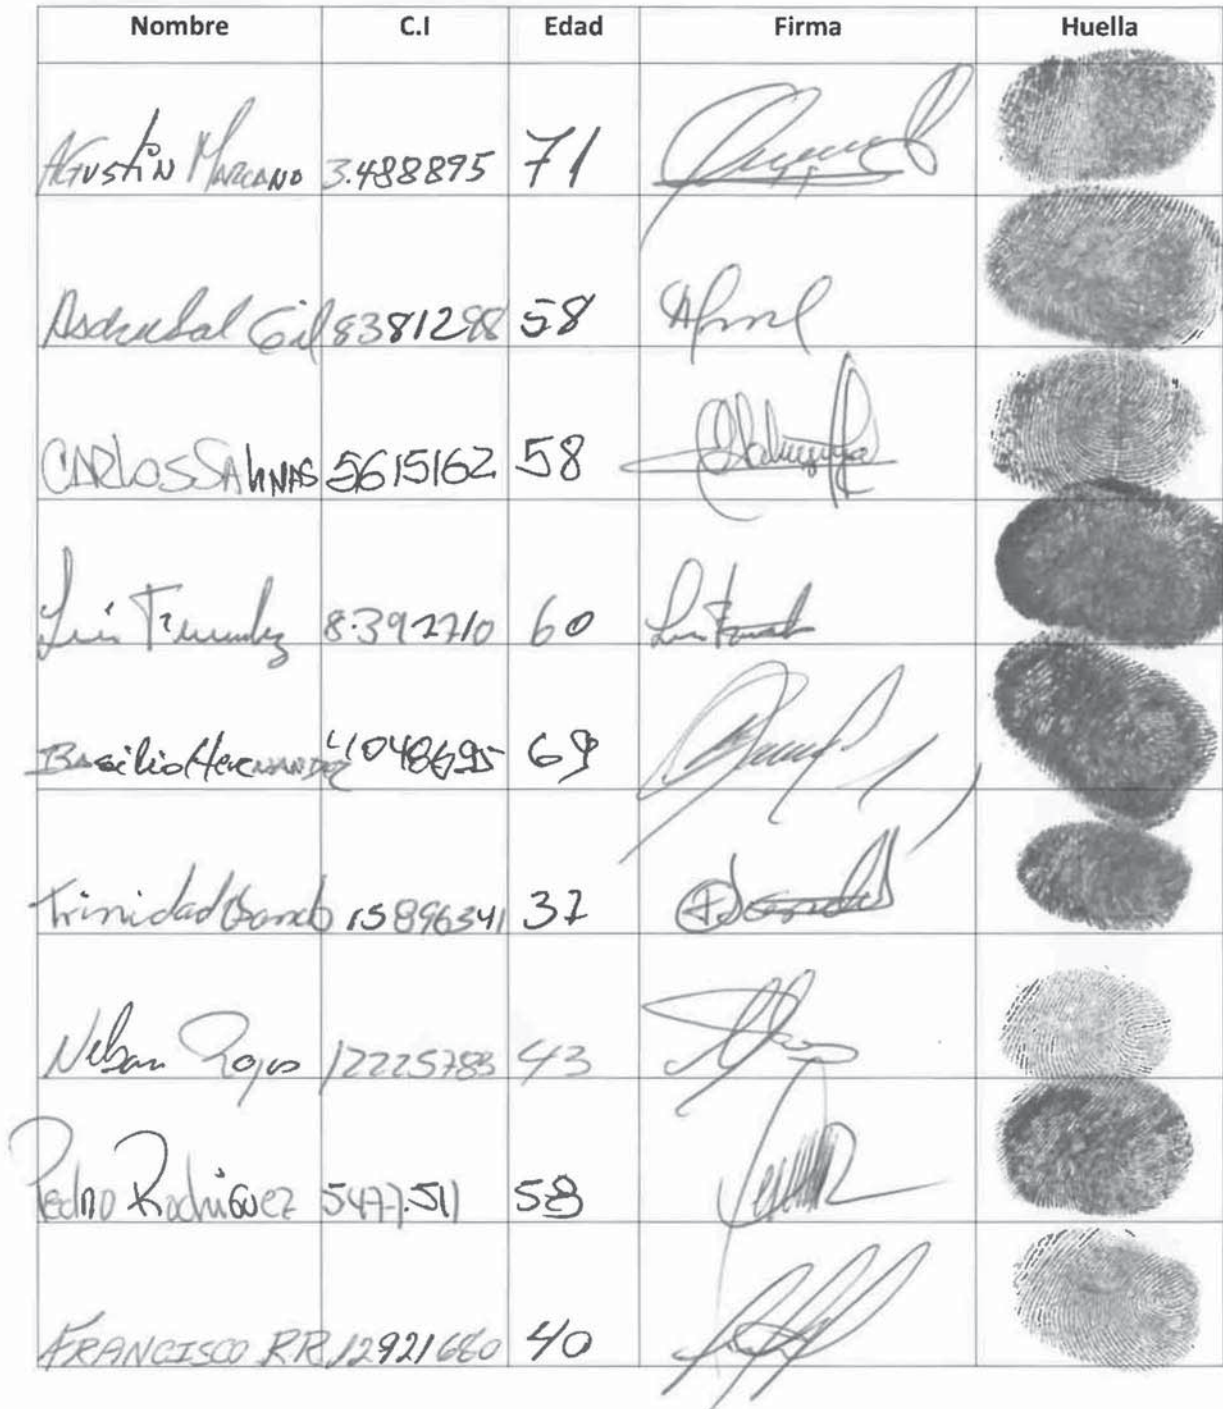 Nombre C.I Edad Firma Huella
Agustin Marcano 3.488895 71
Asdrubal Gil 8381298 58
CARLOS SALINAS 5615162 58
Luis 8.392710 60 Luis
Basilio Hernandez 4048695 69
Trinidad 15896341 37
Nelson Rojas 12225783 43
Pedro Rodriguez 5477.511 58
FRANCISCO RR 12921660 40